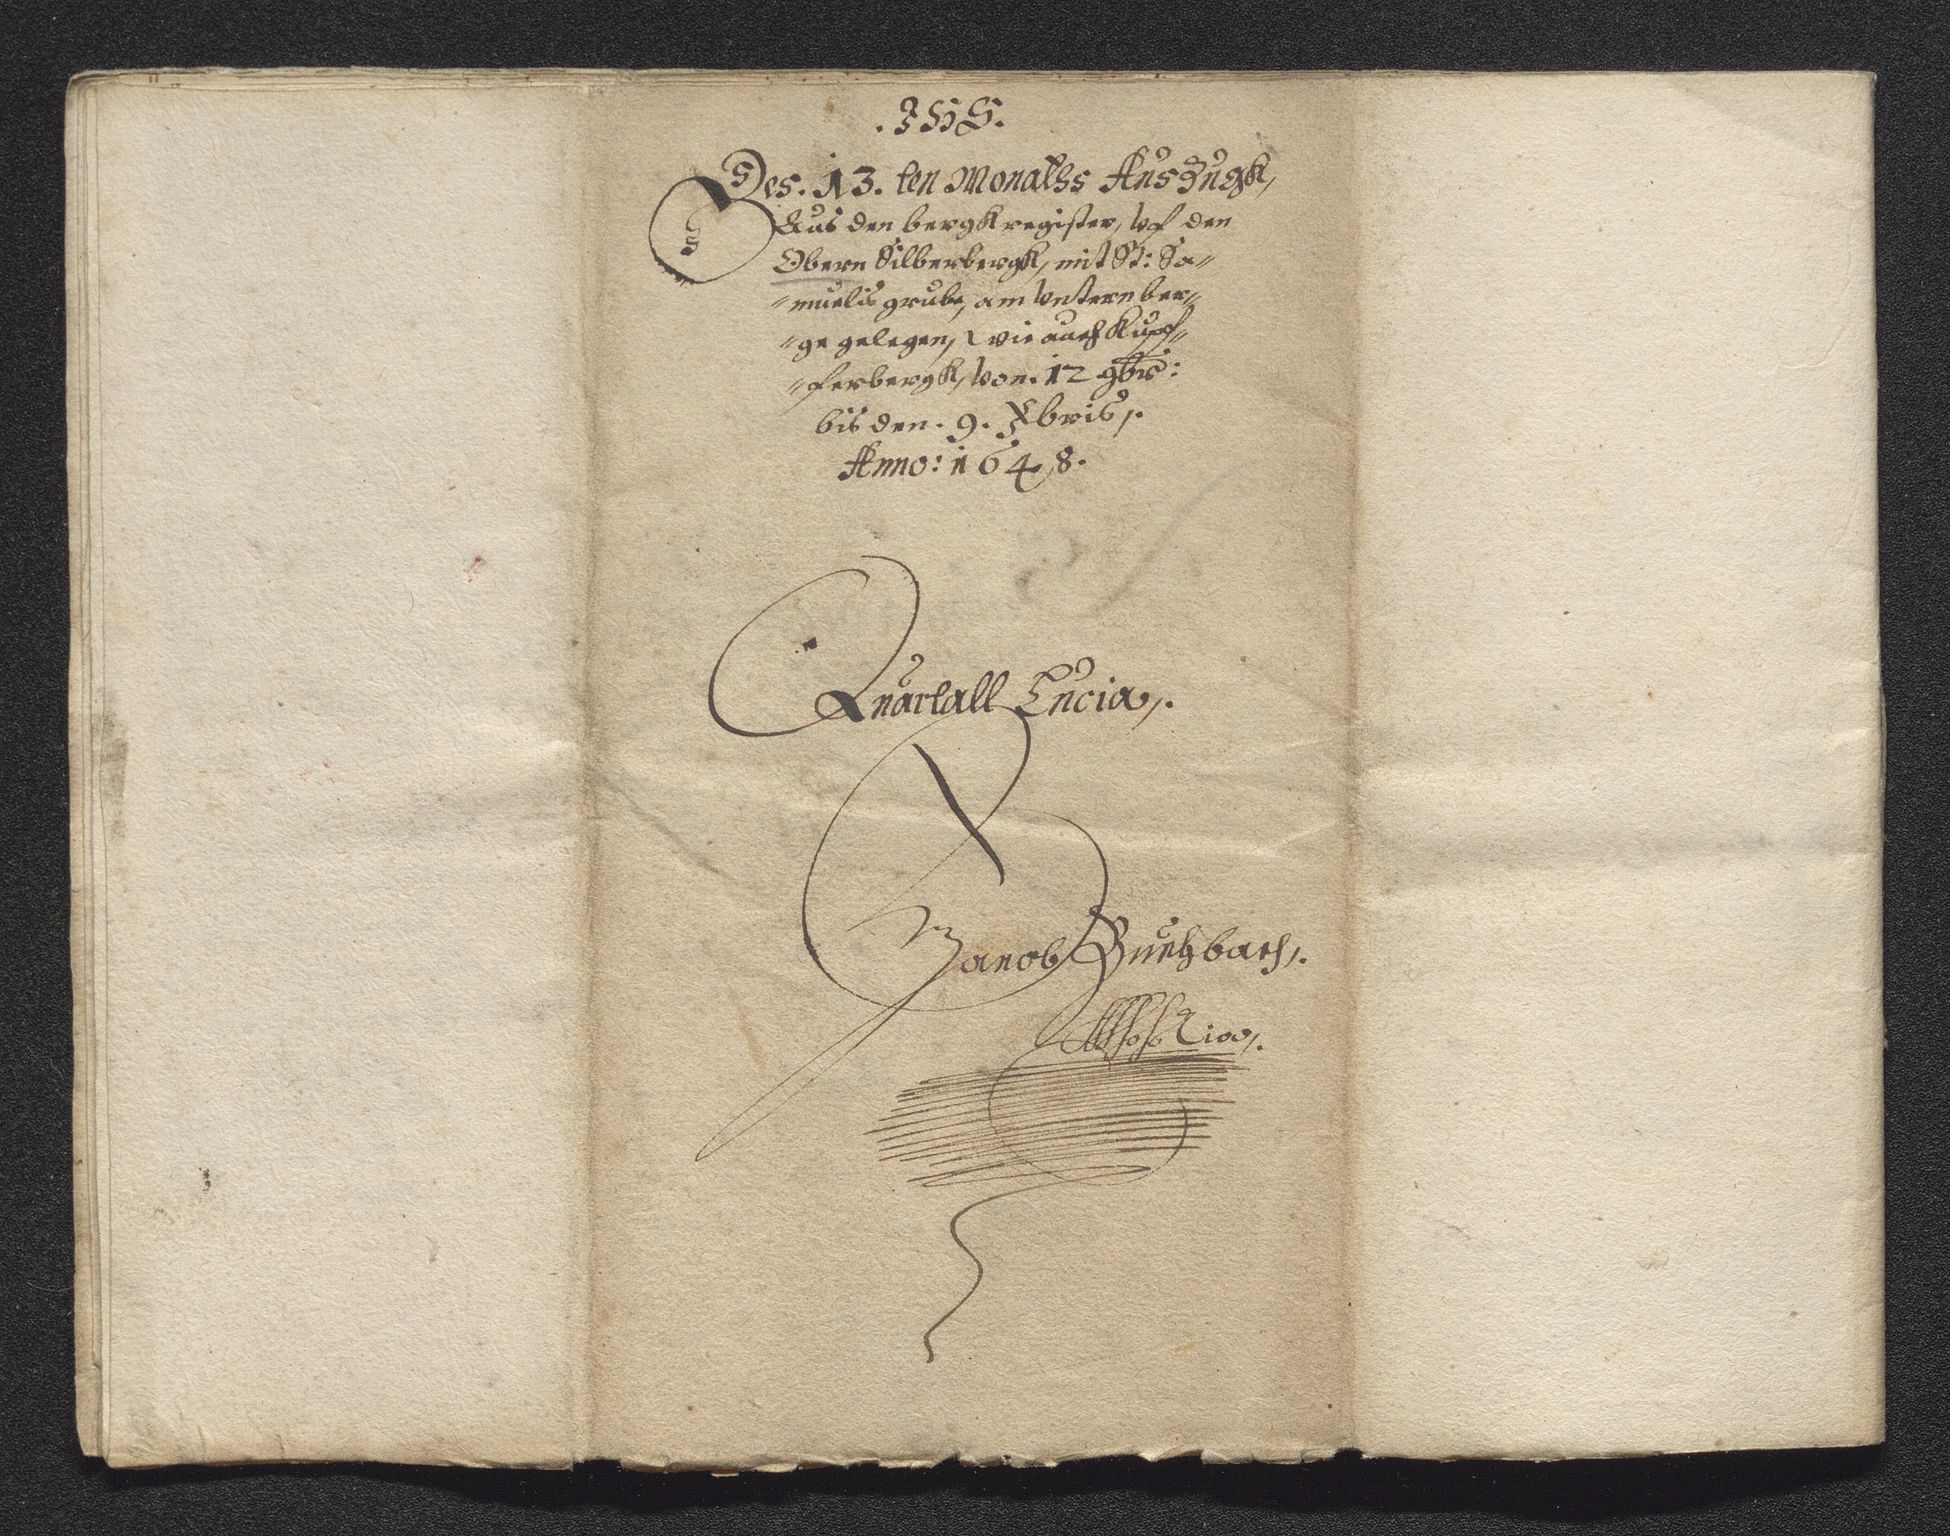 . JHS.
Des. 13. ten Monaths Auszugk,
Aus den bergk register, vf den
Obern Silberbergk, mit St: Sa-
-muelis grube, am Vnternber-
-ge gelegen, wie auch Kupf-
-ferbergk, Von. 12 9bris:
bis den. 9. Xbris.
Anno: 1648.
Quartall Lucia.
Jacob Buchbach.